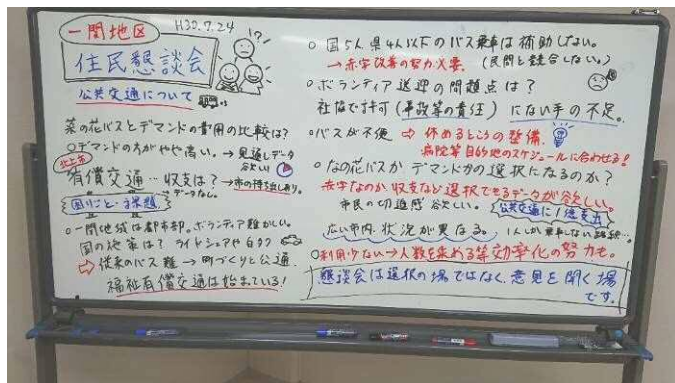 一関地区
H30.7.24
住民懇談会
!?
公共交通について
菜の花バスとデマンドの費用の比較は?
○デマンドの方がやや高い。→見通しデータ欲しい
北上市
有償交通…収支は?→市の持ち出しあり。
→データなし。
困りごと・課題
○一関地域は都市部。ボランティア難かしい。
国の施策は? ライドシェアや白タク
⇨従来のバス難→町づくりと公通
福祉有償交通は始まっている!
○国5人県4人以下のバス乗車は補助しない。
→赤字改善の努力必要。(民間と競合しない。)
○ボランティア送迎の問題点は?
社協では許可(事故等の責任)にない手の不足。
○バスが不便⇨休めるところの整備。
病院等目的地のスケジュールに合わせる!
○なの花バスかデマンドかの選択になるのか?
赤字なのか収支など選択できるデータが欲しい。
市民の切迫感欲しい。
公共交通に1億支出
広い市内、状況が異なる。
1人しか乗車しない路線…
○利用少ない→人数を集める等効率化の努力も。
懇談会は選択の場ではなく、意見を聞く場です。